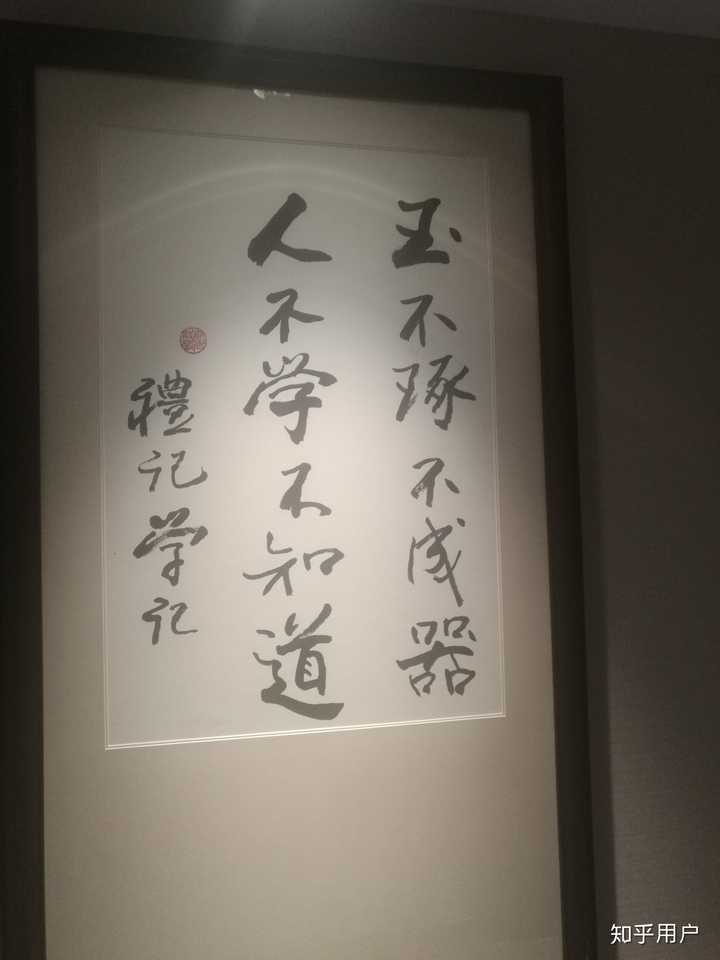 玉不琢不成器
人不学不知道
禮记学记
知乎用户